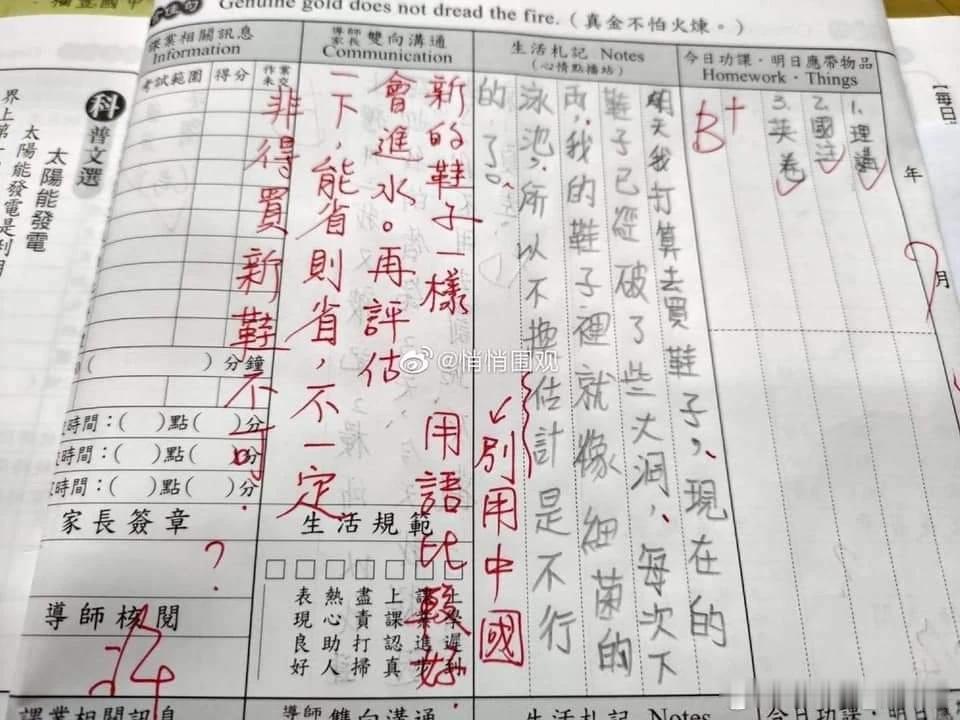 Genuine gold does not dread the fire.(真金不怕火煉。)
課業相關訊息
Information
考試範圍
得分
作業未交
導師家長 雙向溝通
Communication
生活札記 Notes
(心情點播站)
今日功課・明日應帶物品
Homework・Things
年
月
1. 理講
2. 國注
3. 英卷
B+
明天我打算去買鞋子,現在的
鞋子已經破了些大洞,每次下
雨,我的鞋子裡就像細菌的
泳池,所以不換估計是不行
的了。
別用中國
用語比較好
新的鞋子一樣
會進水。再評估
一下,能省則省,不一定
非得買新鞋不可.
@悄悄围观
( )分鐘
時間:( )點( )分
時間:( )點( )分
時間:( )點( )分
家長簽章
?
導師核閱
生活規範
上學遲到
上課認真
盡責打掃
熱心助人
表現良好
科普文選
太陽能發電
太陽能發電是利用
界上第一
【每日
課業相關訊息
導師 雙向溝通
生活札記 Notes
今日功課・明日應